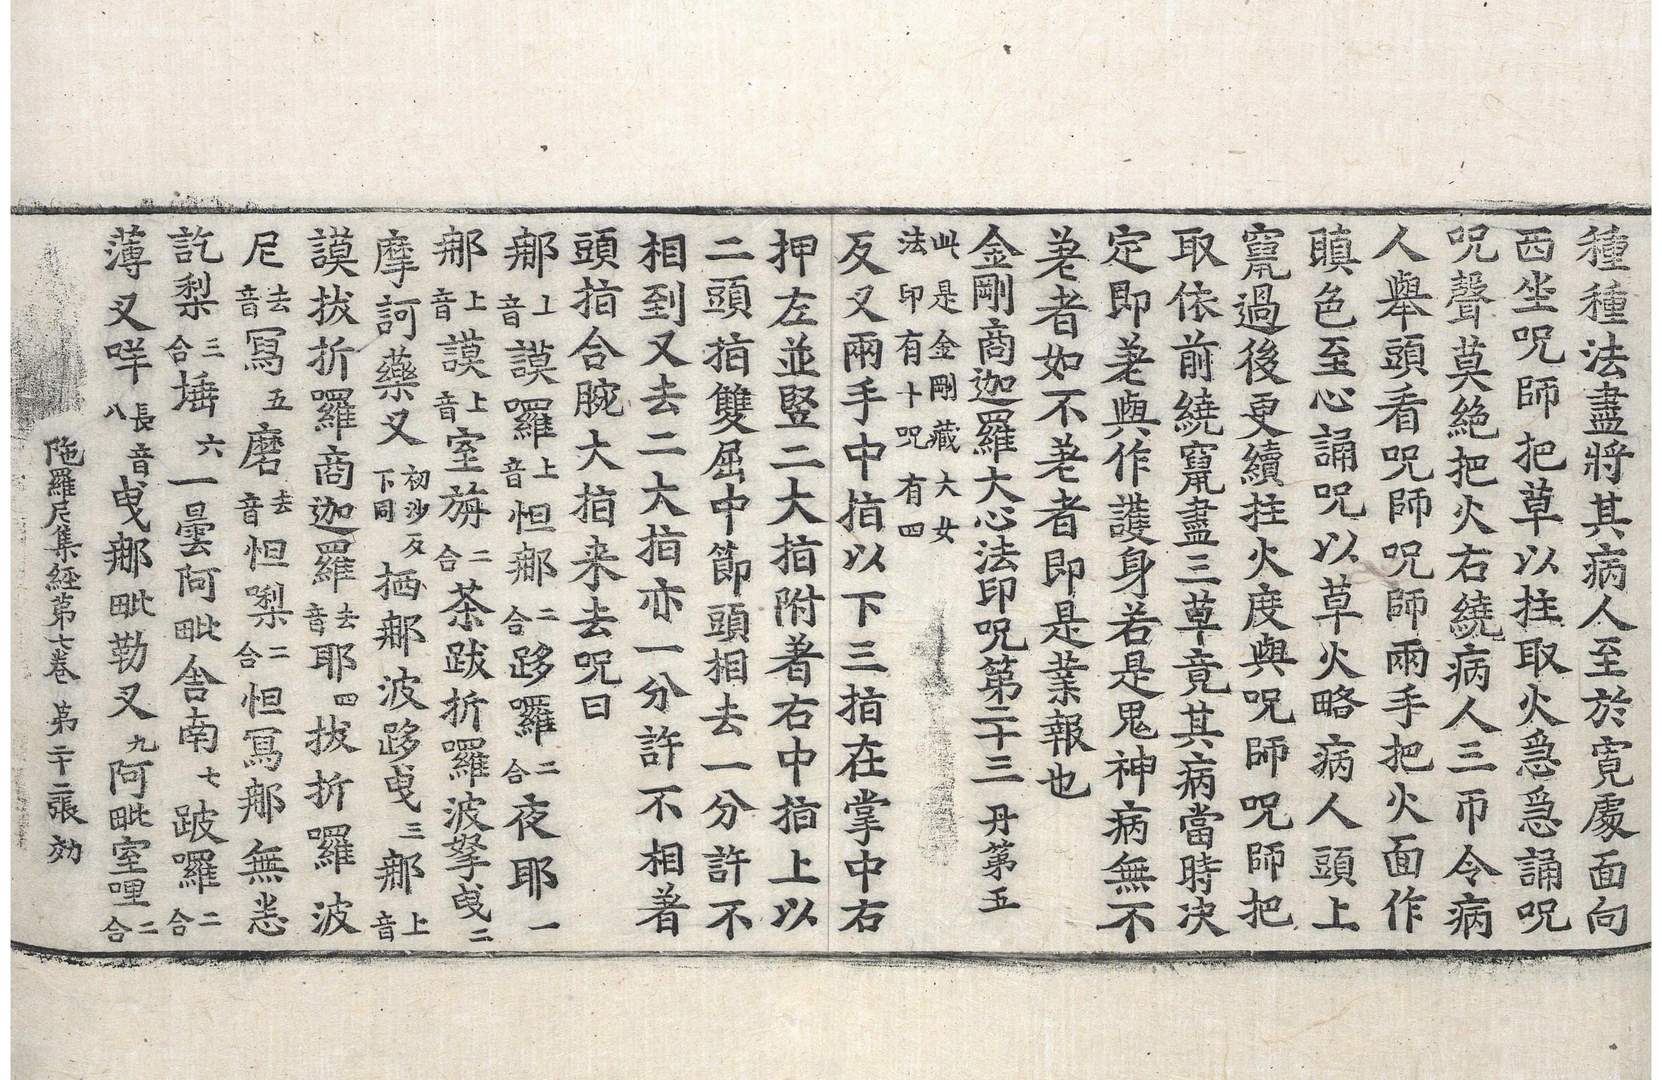 種種法盡將其病人至於寬處面向
西坐呪師把草以拄取火急急誦呪
呪聲莫絶把火右繞病人三帀令病
人舉頭看呪師呪師兩手把火面作
瞋色至心誦呪以草火略病人頭上
竄過後更續拄火度與呪師呪師把
取依前繞竄盡三草竟其病當時决
定即差與作護身若是鬼神病無不
差者如不差者即是業報也
金剛商迦羅大心法印呪第二十三 丹第五
此是金剛藏大女
法印有十呪有四
反叉兩手中指以下三指在掌中右
押左並竪二大指附著右中指上以
二頭指雙屈中節頭相去一分許不
相到又去二大指亦一分許不相著
頭指合腕大指来去呪曰
那上音謨羅上音怛那二合跢囉二合夜耶一
那上音謨上音室旃二合茶跋折囉波拏曳二
摩訶藥叉初沙反下同栖那波跢曳三那上音
謨拔折囉商迦羅去音耶四拔折囉波
尼去音寫五磨去音怛㘑二合怛寫那無恙
訖梨三合埵六一曇阿毗舍南七跛囉二合
薄叉咩長音八曳那毗勒叉九阿毗室哩二合
陁羅尼集經第七卷 第二十二張 効